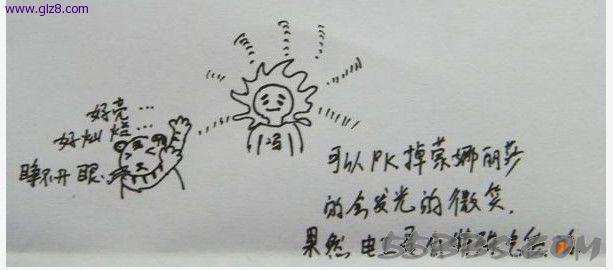 www.glz8.com
好亮…
好灿烂…
睁不开眼…
冯
可以PK掉蒙娜丽莎
的会发光的微笑.
果然电
55BBS.COM